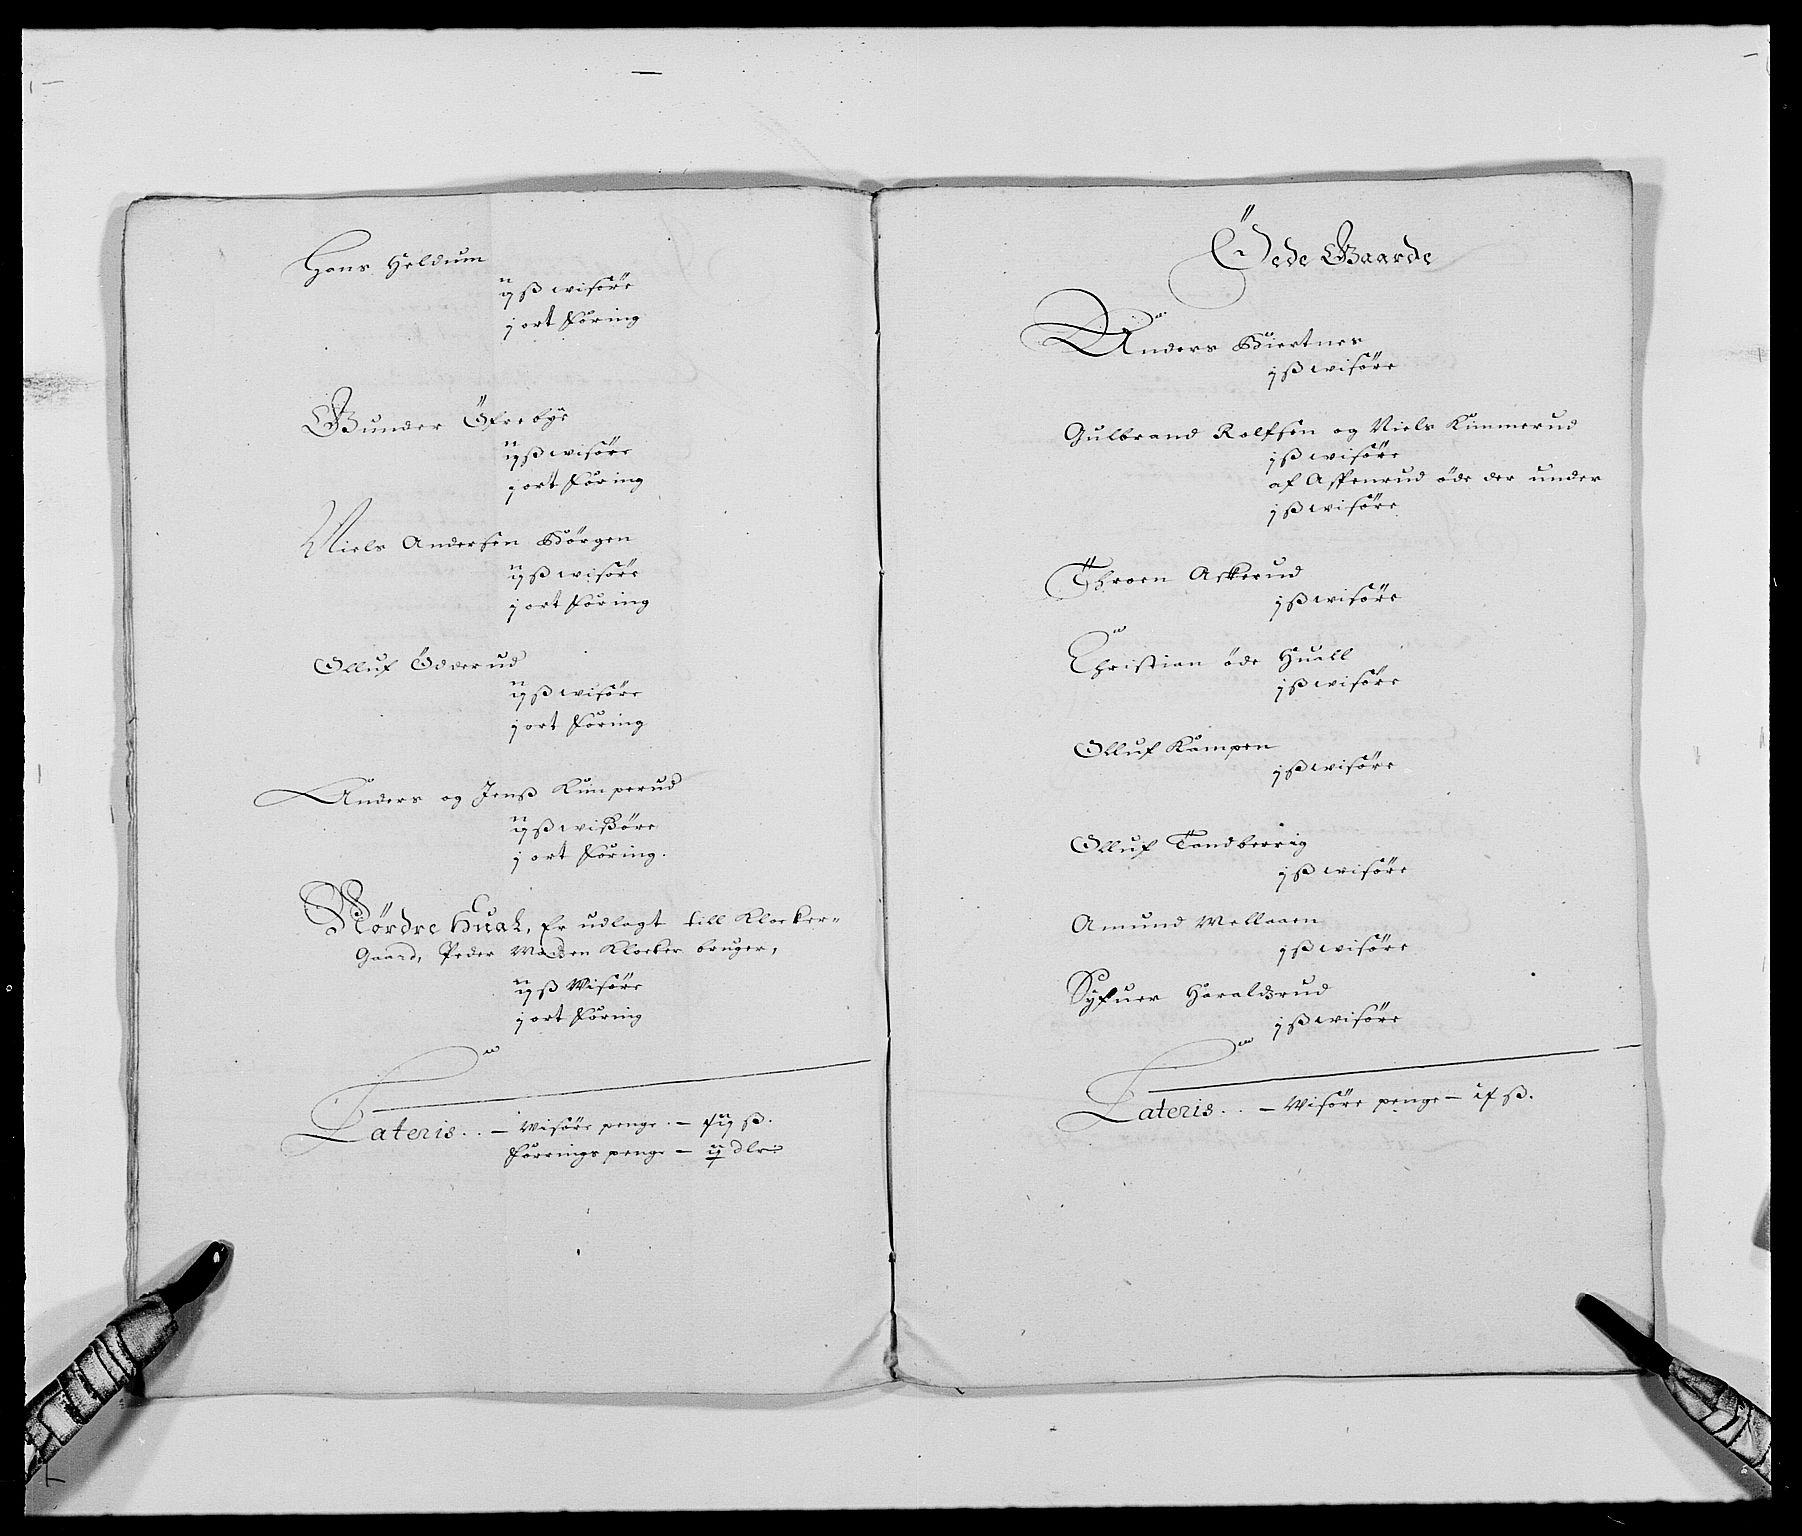 Hans Heldum
ij ß wisöre
j ort Föring
Gunder Öfrebye
ij ß wisöre
j ort Föring
Niels Andersen Börgen
ij ß wisöre
j ort Föring
Olluf Odderud
ij ß wisöre
j ort Föring
Anders og Jenß Kimperud
ij ß wißöre
j ort Föring.
Nørdre Hual, Er udlagt till Klocker-
Gaard, Peder Madsen Klocker bruger,
ij ß Wisöre
j ort Föring
Lateris.. — Wisöre penge. — ß.
Förrings penge — ij dlr:
Öede Gaarde
Anders Biertnes
j ß wisöre
Gulbrand Rolfsen og Niels Kimmerud
j ß wisöre
af Aspenrud öde der under
j ß wisöre
Throen Askerud
j ß wisöre
Christian öde Huall
j ß wisöre
Olluf Kampen
j ß wisöre
Olluf Tandberrig
j ß wisöre
Amund Mellaaen
j ß wisöre
Syfuer Haraldsrud
j ß wisöre
Lateris.. — Wisöre penge — ix ß.